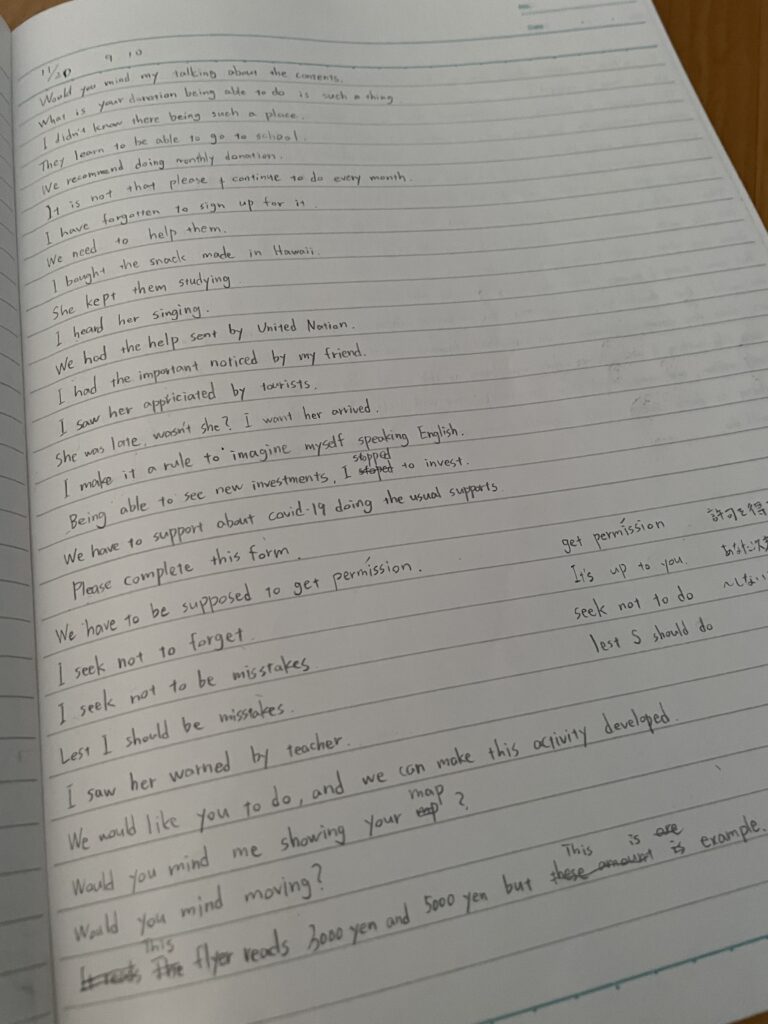 11/20 9 10
Would you mind my talking about the contents.
What is your donation being able to do is such a thing
I didn't know there being such a place.
They learn to be able to go to school.
We recommend doing monthly donation.
It is not that please & continue to do every month.
I have forgotten to sign up for it.
We need to help them.
I bought the snack made in Hawaii.
She kept them studying
I heard her singing.
We had the help sent by United Nation.
I had the important noticed by my friend.
I saw her appriciated by tourists.
She was late, wasn't she? I want her arrived.
I make it a rule to imagine myself speaking English.
Being able to see new investments, I stopped to invest.
We have to support about covid-19 doing the usual supports
Please complete this form.
get permission 許可を得
We have to be supposed to get permission.
It's up to you. あなた次
I seek not to forget.
seek not to do ~しない
I seek not to be misstakes
lest S should do
Lest I should be misstakes.
I saw her warned by teacher.
We would like you to do, and we can make this activity developed.
Would you mind me showing your map?
Would you mind moving?
This flyer reads 3000 yen and 5000 yen but This is are example.